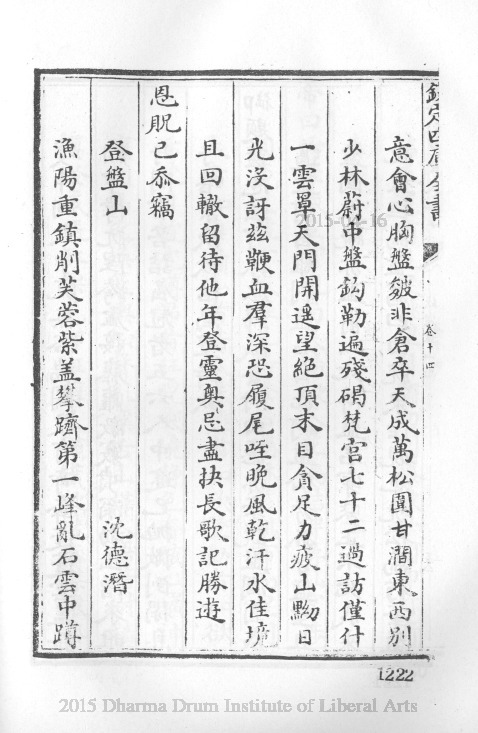 欽定四庫全書
卷十四
意會心胸盤皴非倉卒天成萬松圓甘澗東西別
少林蔚中盤鈎勒遍殘碣梵宮七十二過訪僅什
一雲罩天門開遥望絶頂末目貪足力疲山黝日
光沒訝兹鞭血羣深恐履尾咥晩風乾汗水佳境
且回轍留待他年登靈奥忌盡抉長歌記勝遊
恩貺已忝竊
登盤山 沈德潛
漁陽重鎮削芙蓉紫盖攀躋第一峰亂石雲中蹲
1222
2015 Dharma Drum Institute of Liberal Arts